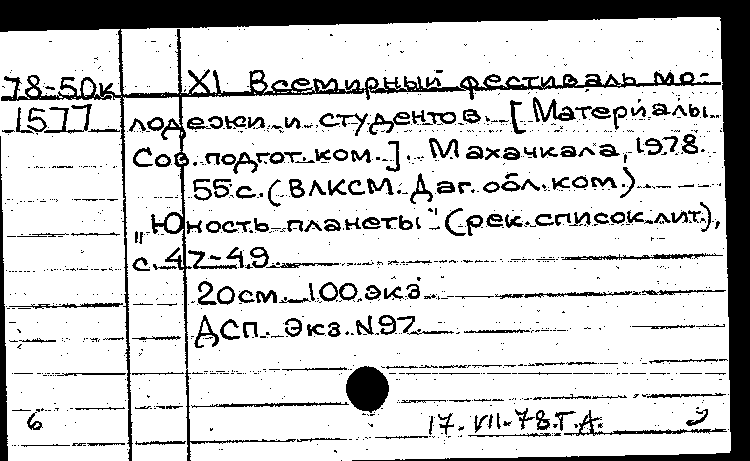 78-50к XI Всемирный фестиваль мо-
1577 лодежи и студентов. [Материалы
Сов. подгот. ком.]. Махачкала, 1978.
55 с. (ВЛКСМ. Даг. обл. ком.)
„Юность планеты" (рек. список лит.),
с. 47-49
20 см. 100 экз
ДСП. Экз. N97
6 17. VII-78. Т.А.